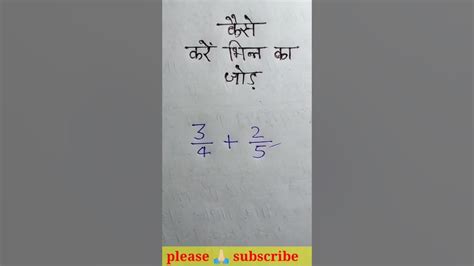 कैसे
करें भिन्न का
जोड़
3/4 + 2/5
please 🙏 subscribe